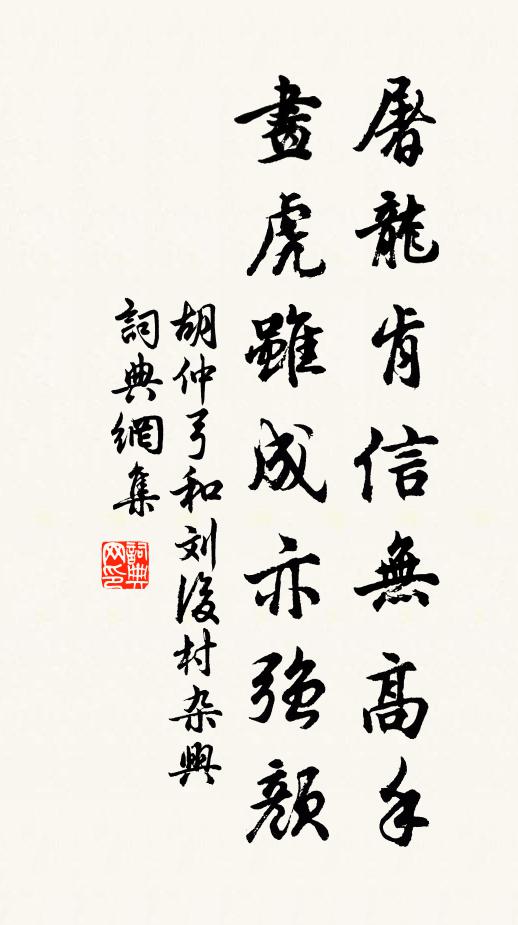 屠龍肯信無高手
畫虎雖成亦強顔
胡仲弓和刘後村杂興
詞典網集
詞典网印